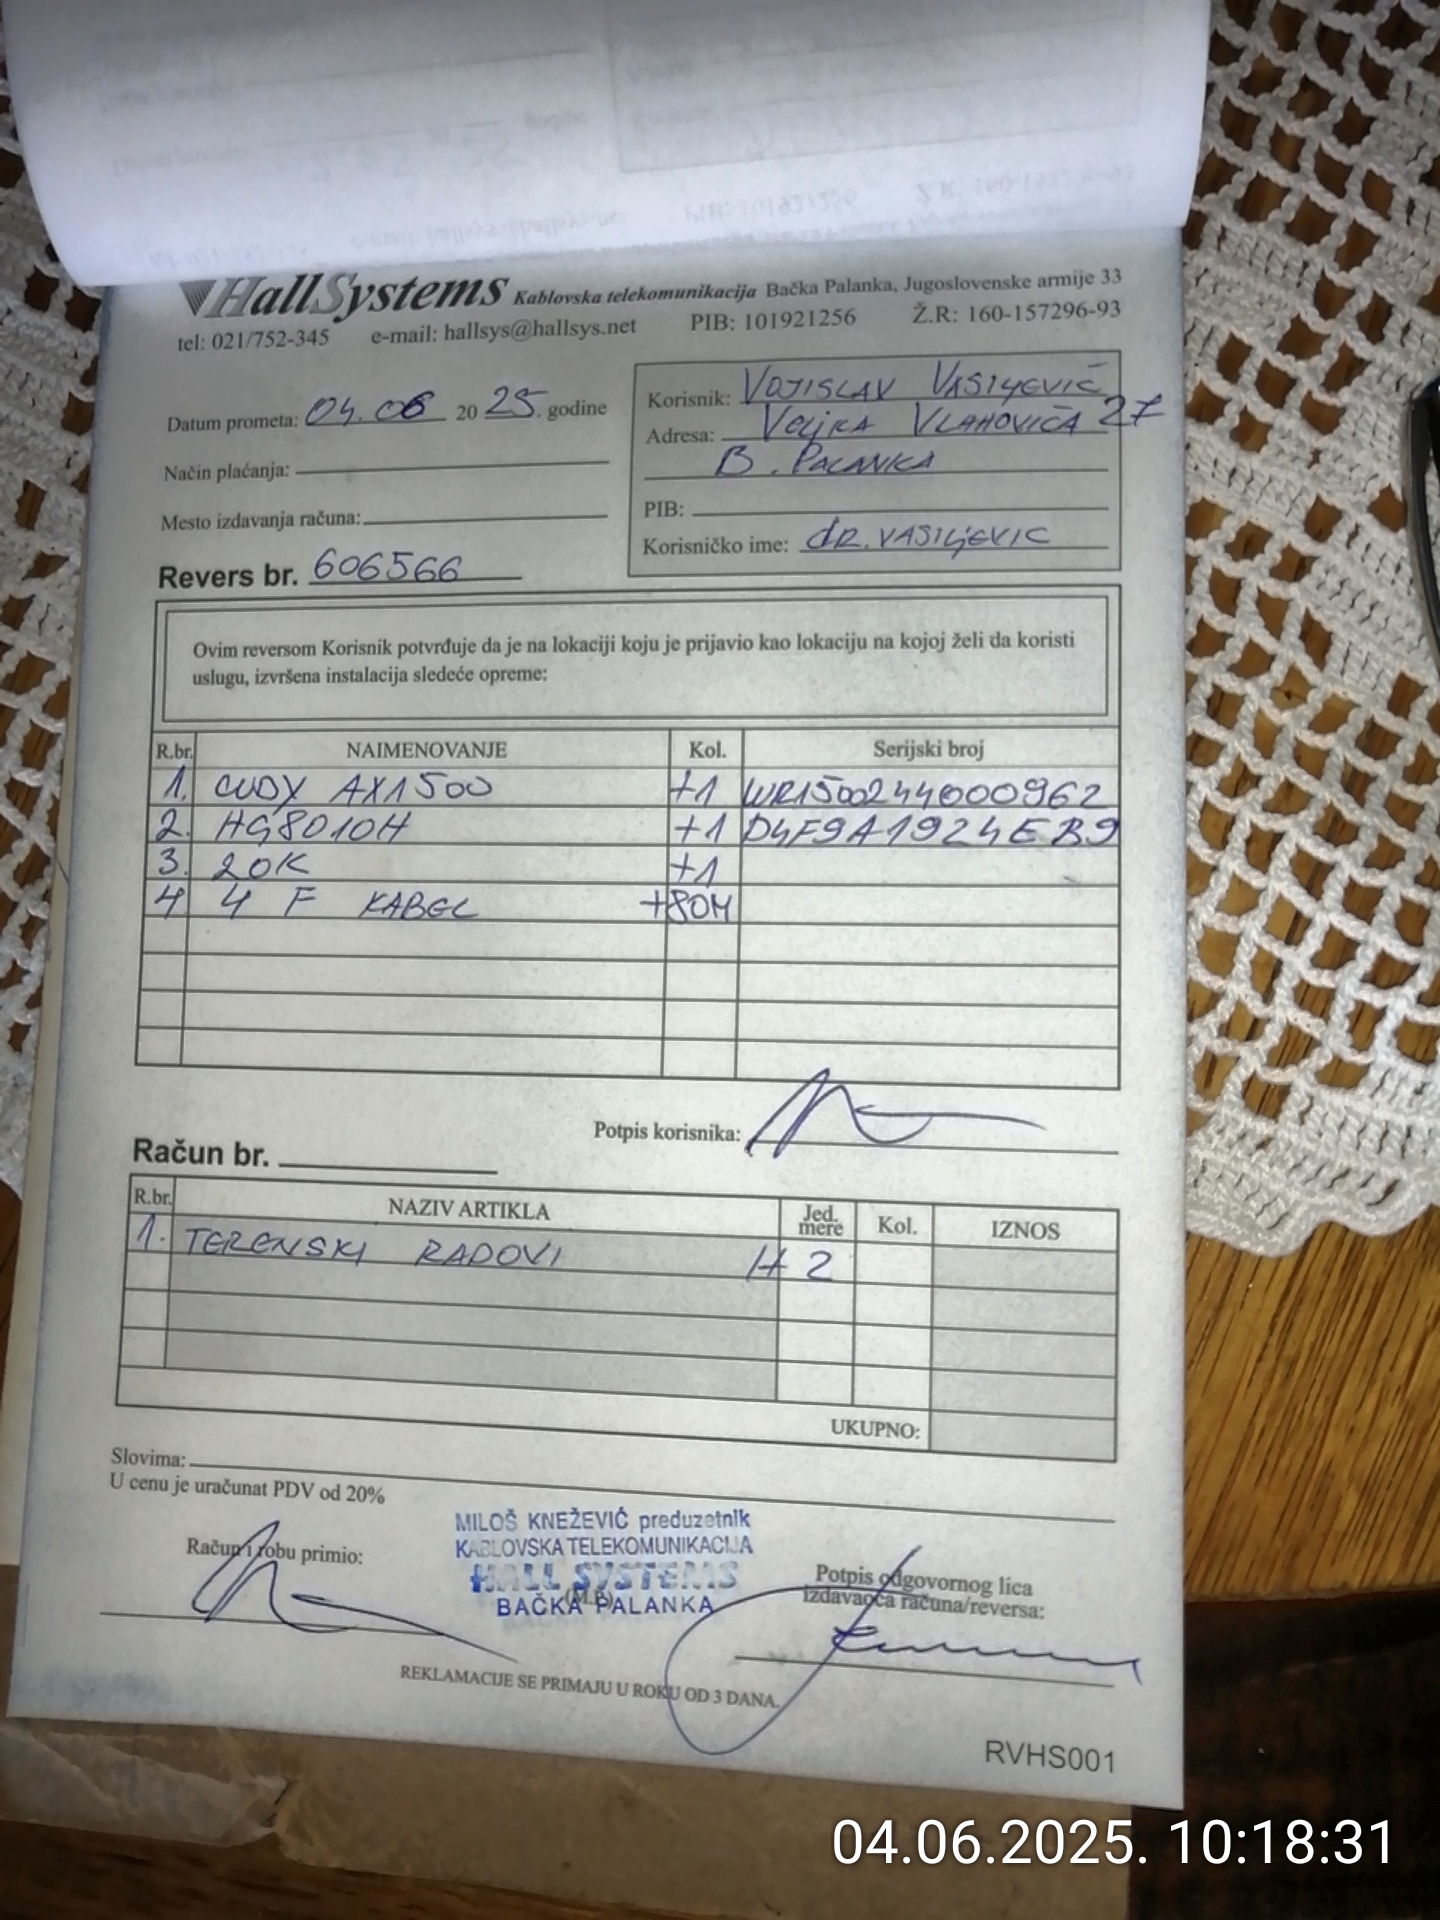 HallSystems Kablovska telekomunikacija Bačka Palanka, Jugoslovenske armije 33
tel: 021/752-345 e-mail: hallsys@hallsys.net PIB: 101921256 Ž.R: 160-157296-93
Datum prometa: 04.06 20 25. godine
Način plaćanja:
Mesto izdavanja računa:
Revers br. 606566
Korisnik: VOJISLAV VASILJEVIĆ
Adresa: VELJKA VLAHOVIĆA 27
B. PALANKA
PIB:
Korisničko ime: dR.VASILJEVIC
Ovim reversom Korisnik potvrđuje da je na lokaciji koju je prijavio kao lokaciju na kojoj želi da koristi
uslugu, izvršena instalacija sledeće opreme:
R.br. NAIMENOVANJE Kol. Serijski broj
1. CUDY AX1500 +1 WR1500244000962
2. HG8010H +1 D4F9A1924EB9
3. 20K +1
4 4 F KABEL +80M
Potpis korisnika:
Račun br.
R.br. NAZIV ARTIKLA Jed. mere Kol. IZNOS
1. TERENSKI RADOVI H 2
UKUPNO:
Slovima:
U cenu je uračunat PDV od 20%
MILOŠ KNEŽEVIĆ preduzetnik
KABLOVSKA TELEKOMUNIKACIJA
HALL SYSTEMS
(M.P.)
BAČKA PALANKA
Račun i robu primio:
Potpis odgovornog lica
izdavaoca računa/reversa:
REKLAMACIJE SE PRIMAJU U ROKU OD 3 DANA.
RVHS001
04.06.2025. 10:18:31